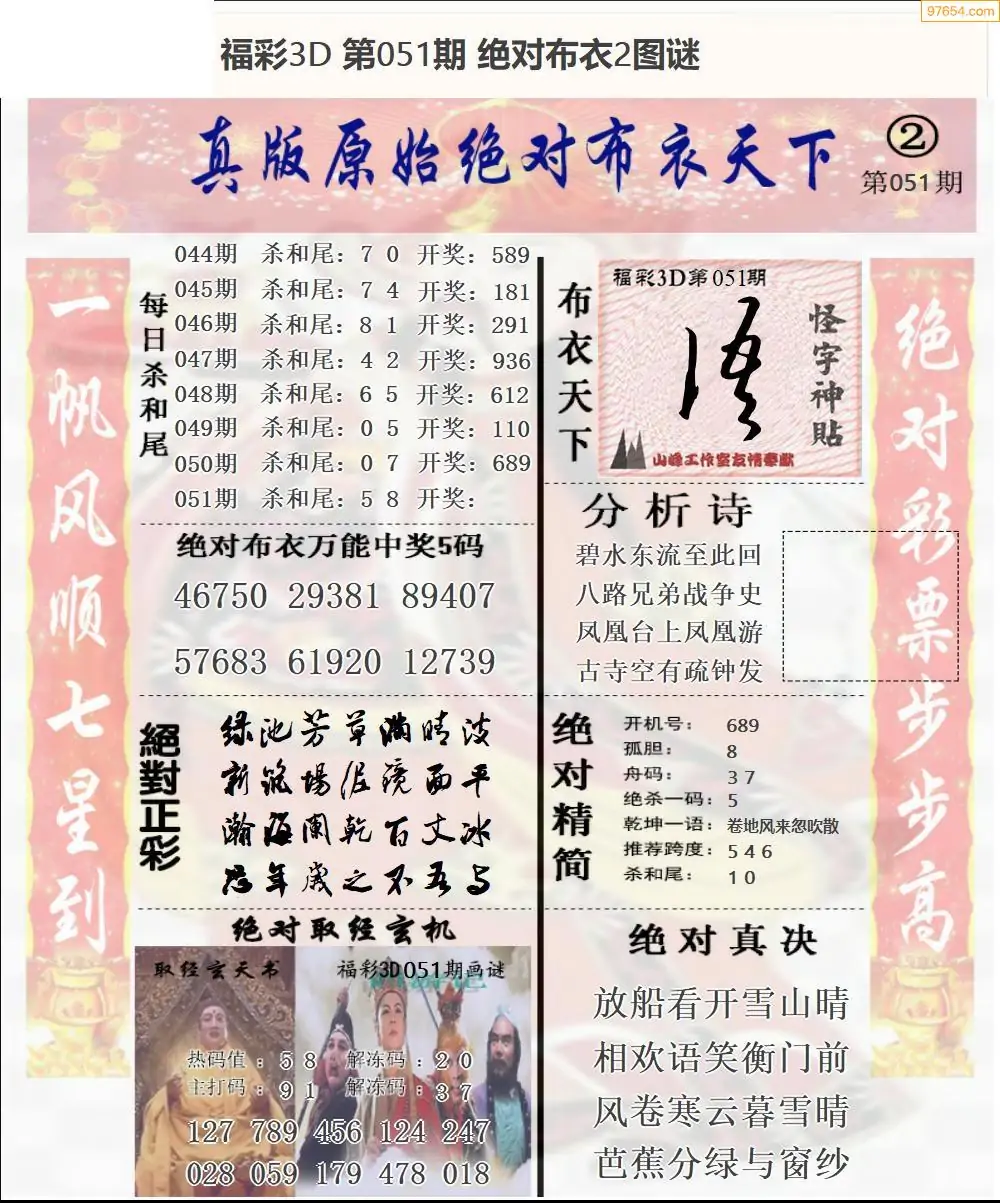 97654.com
福彩3D 第051期 绝对布衣2图谜
真版原始绝对布衣天下
②
第051期
一帆风顺七星到
每日杀和尾
044期 杀和尾：7 0 开奖：589
045期 杀和尾：7 4 开奖：181
046期 杀和尾：8 1 开奖：291
047期 杀和尾：4 2 开奖：936
048期 杀和尾：6 5 开奖：612
049期 杀和尾：0 5 开奖：110
050期 杀和尾：0 7 开奖：689
051期 杀和尾：5 8 开奖：
绝对布衣万能中奖5码
46750 29381 89407
57683 61920 12739
絕對正彩
绿池芳草满晴波
新筑場
镜面平
瀚海阑乾百丈冰
年歲之不吾与
绝对取经玄机
取经玄天书
福彩3D051期画谜
热码值：5 8 解冻码：2 0
主打码：9 1 解冻码：3 7
127 789 456 124 247
028 059 179 478 018
布衣天下
福彩3D第051期
怪字神贴
山峰工作室友情奉献
分析诗
碧水东流至此回
八路兄弟战争史
凤凰台上凤凰游
古寺空有疏钟发
绝对精简
开机号：689
孤胆：8
舟码：3 7
绝杀一码：5
乾坤一语：卷地风来忽吹散
推荐跨度：5 4 6
杀和尾：1 0
绝对真决
放船看开雪山晴
相欢语笑衡门前
风卷寒云暮雪晴
芭蕉分绿与窗纱
绝对彩票步步高